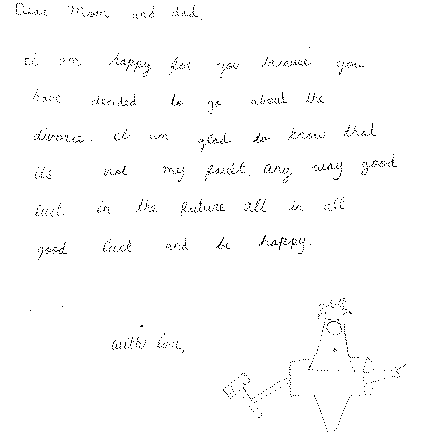 Dear Mom and dad,
I am happy for you because you
have decided to go about the
divorce. I am glad to know that
its not my fault, any way good
luck in the future all in all
good luck and be happy.
with love,